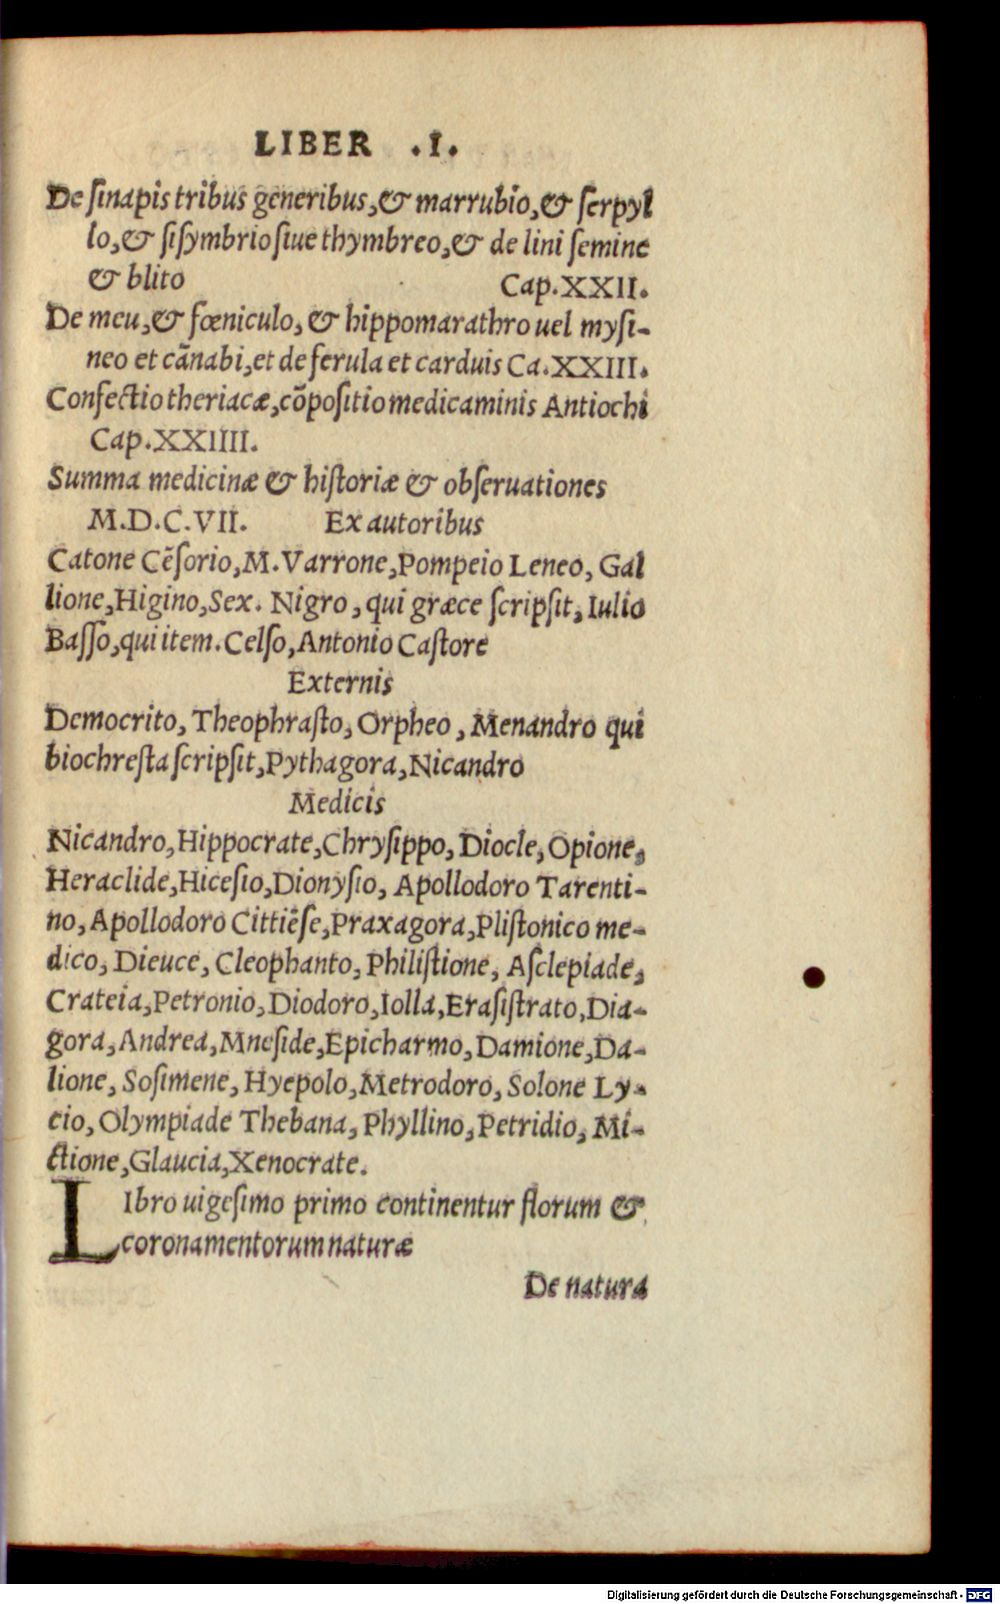 LIBER .I.
De ſinapis tribus generibus,& marrubio,& ſerpyl
lo,& ſiſymbrio ſiue thymbreo,& de lini ſemine
& blito Cap.XXII.
De meu,& fœniculo, & hippomarathro uel myſi-
neo et cānabi,et de ferula et carduis Ca.XXIII.
Confectio theriacæ,cōpoſitio medicaminis Antiochi
Cap.XXIIII.
Summa medicinæ & hiſtoriæ & obſeruationes
M.D.C.VII. Ex autoribus
Catone Cēſorio,M.Varrone,Pompeio Leneo, Gal
lione,Higino,Sex. Nigro, qui græce ſcripſit, Iulio
Baſſo,qui item.Celſo,Antonio Caſtore
Externis
Democrito, Theophraſto, Orpheo, Menandro qui
biochreſta ſcripſit,Pythagora,Nicandro
Medicis
Nicandro,Hippocrate,Chryſippo, Diocle, Opione,
Heraclide,Hiceſio,Dionyſio, Apollodoro Tarenti-
no, Apollodoro Cittiēſe,Praxagora,Pliſtonico me-
dico, Dieuce, Cleophanto, Philiſtione, Aſclepiade,
Crateia,Petronio,Diodoro,Iolla,Eraſiſtrato,Dia-
gora,Andrea,Mneſide,Epicharmo,Damione,Da-
lione, Soſimene, Hyepolo,Metrodoro, Solone Ly-
cio, Olympiade Thebana, Phyllino, Petridio, Mi-
ctione,Glaucia,Xenocrate.
LIbro uigeſimo primo continentur florum &
coronamentorum naturæ
De natura
Digitalisierung gefördert durch die Deutsche Forschungsgemeinschaft - DFG